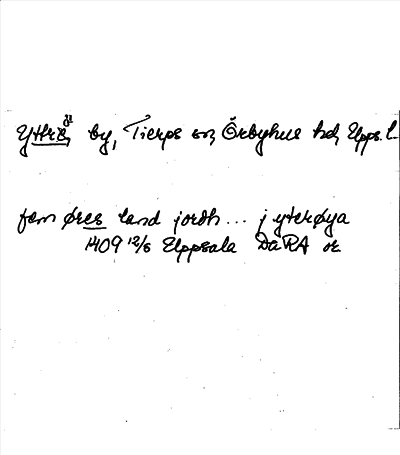 Yttrö by, Tierps sn, Örbyhus hd, Upps. l.
fem øres land jordh... j yterøya
1409 12/5 Uppsala DaRA or